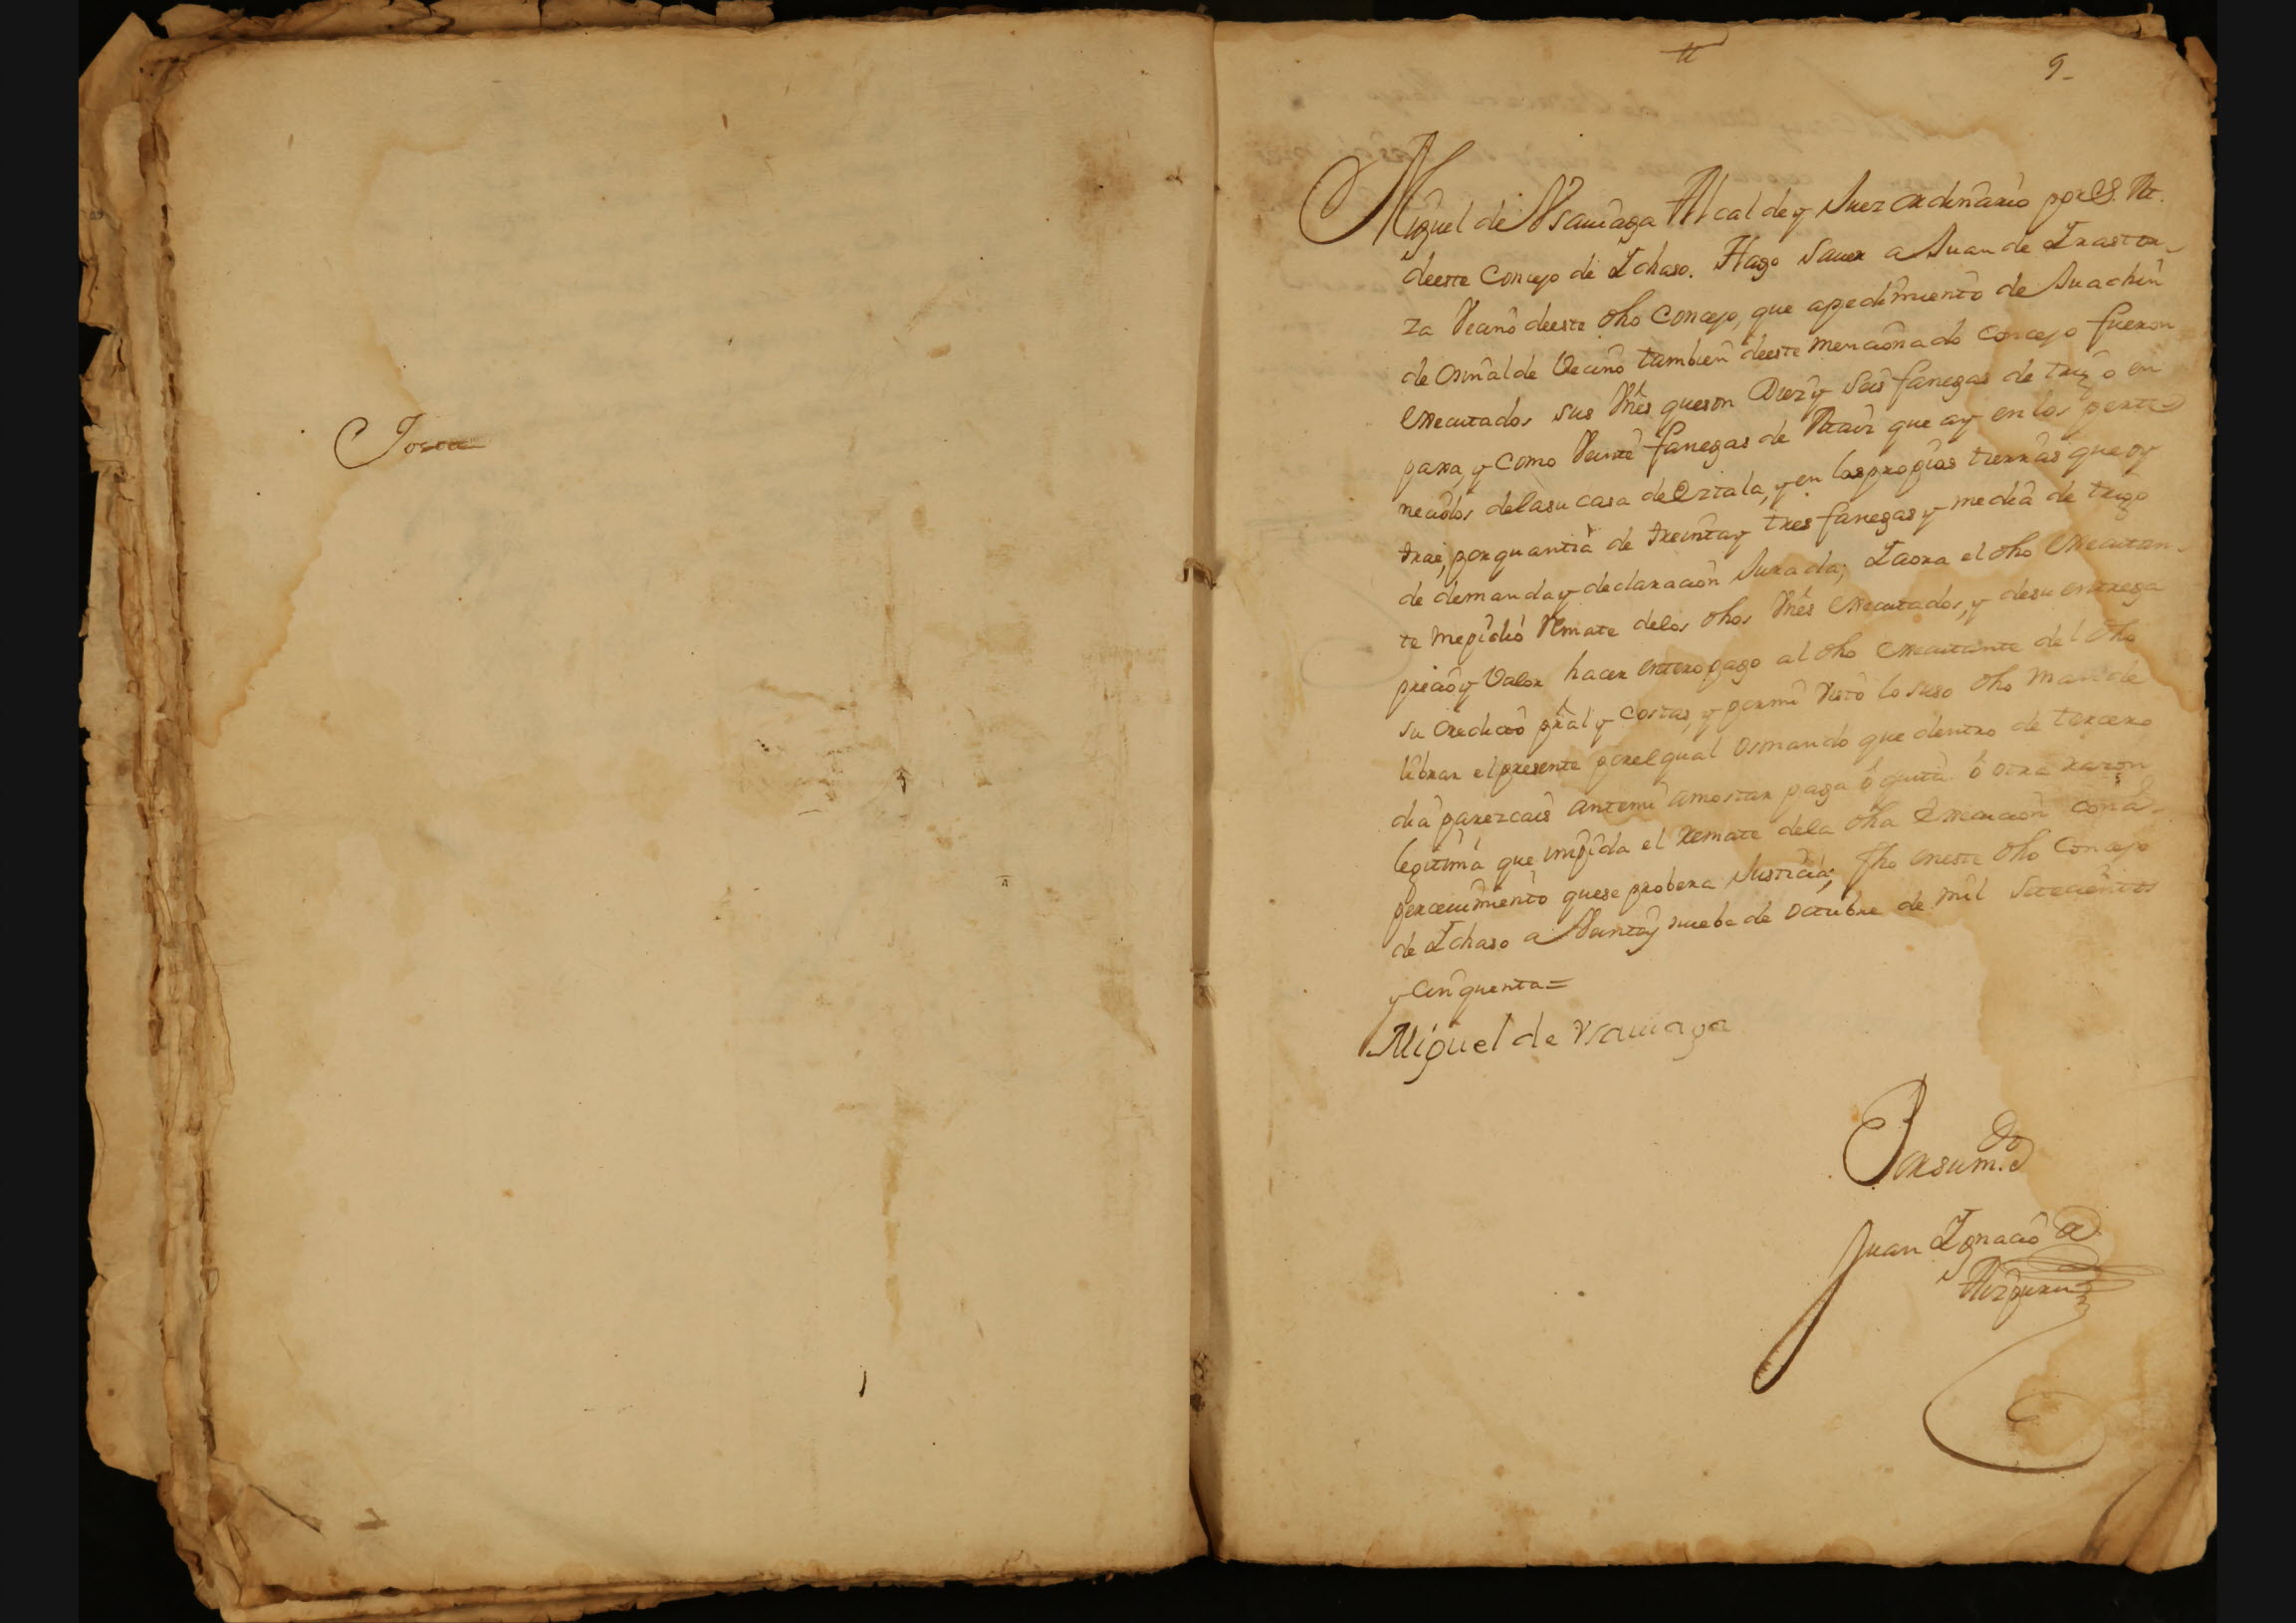 9
Miguel de Vsauiaga Alcalde y Juez ordinario por S. M.
deeste Concejo de Ichaso. Hago Sauer a Juan de Irastor-
za Vecino deeste dho Concejo, que apedimiento de Juachin
de Osinalde Vecino tambien deeste mencionado Concejo fueron
executados sus Vnês queson Diez y Seis fanegas de trigo en
parua, y como Veinte fanegas de Maiz que ay en los perte
necidos delasu casa de Oztala, y en las propias tierras que oy
trae, por quantia de treinta y tres fanegas y media de trigo
de demanda y declaracion Jurada; Iaora el dho executan-
te mepidió Remate delos dhos Vnês executados, y desu entrega
precio y Valor hacer entero pago al dho executante del dho
su credito pral y costas, y pormi Visto lo suso dho mande
librar el presente porelqual osmando que dentro de tercero
dia parezcais antemi amostrar paga ô quita ô otra razon
legitima que impida el remate dela dha execucion con a-
perceuimiento quese probera Justicia; fho eneste dho Concejo
de Ichaso a Veinte y nuebe de octubre de mil setecientos
y cinquenta=
Miguel de vsauiaga
Porsum.do
Juan Ignacio de
Aizpuru